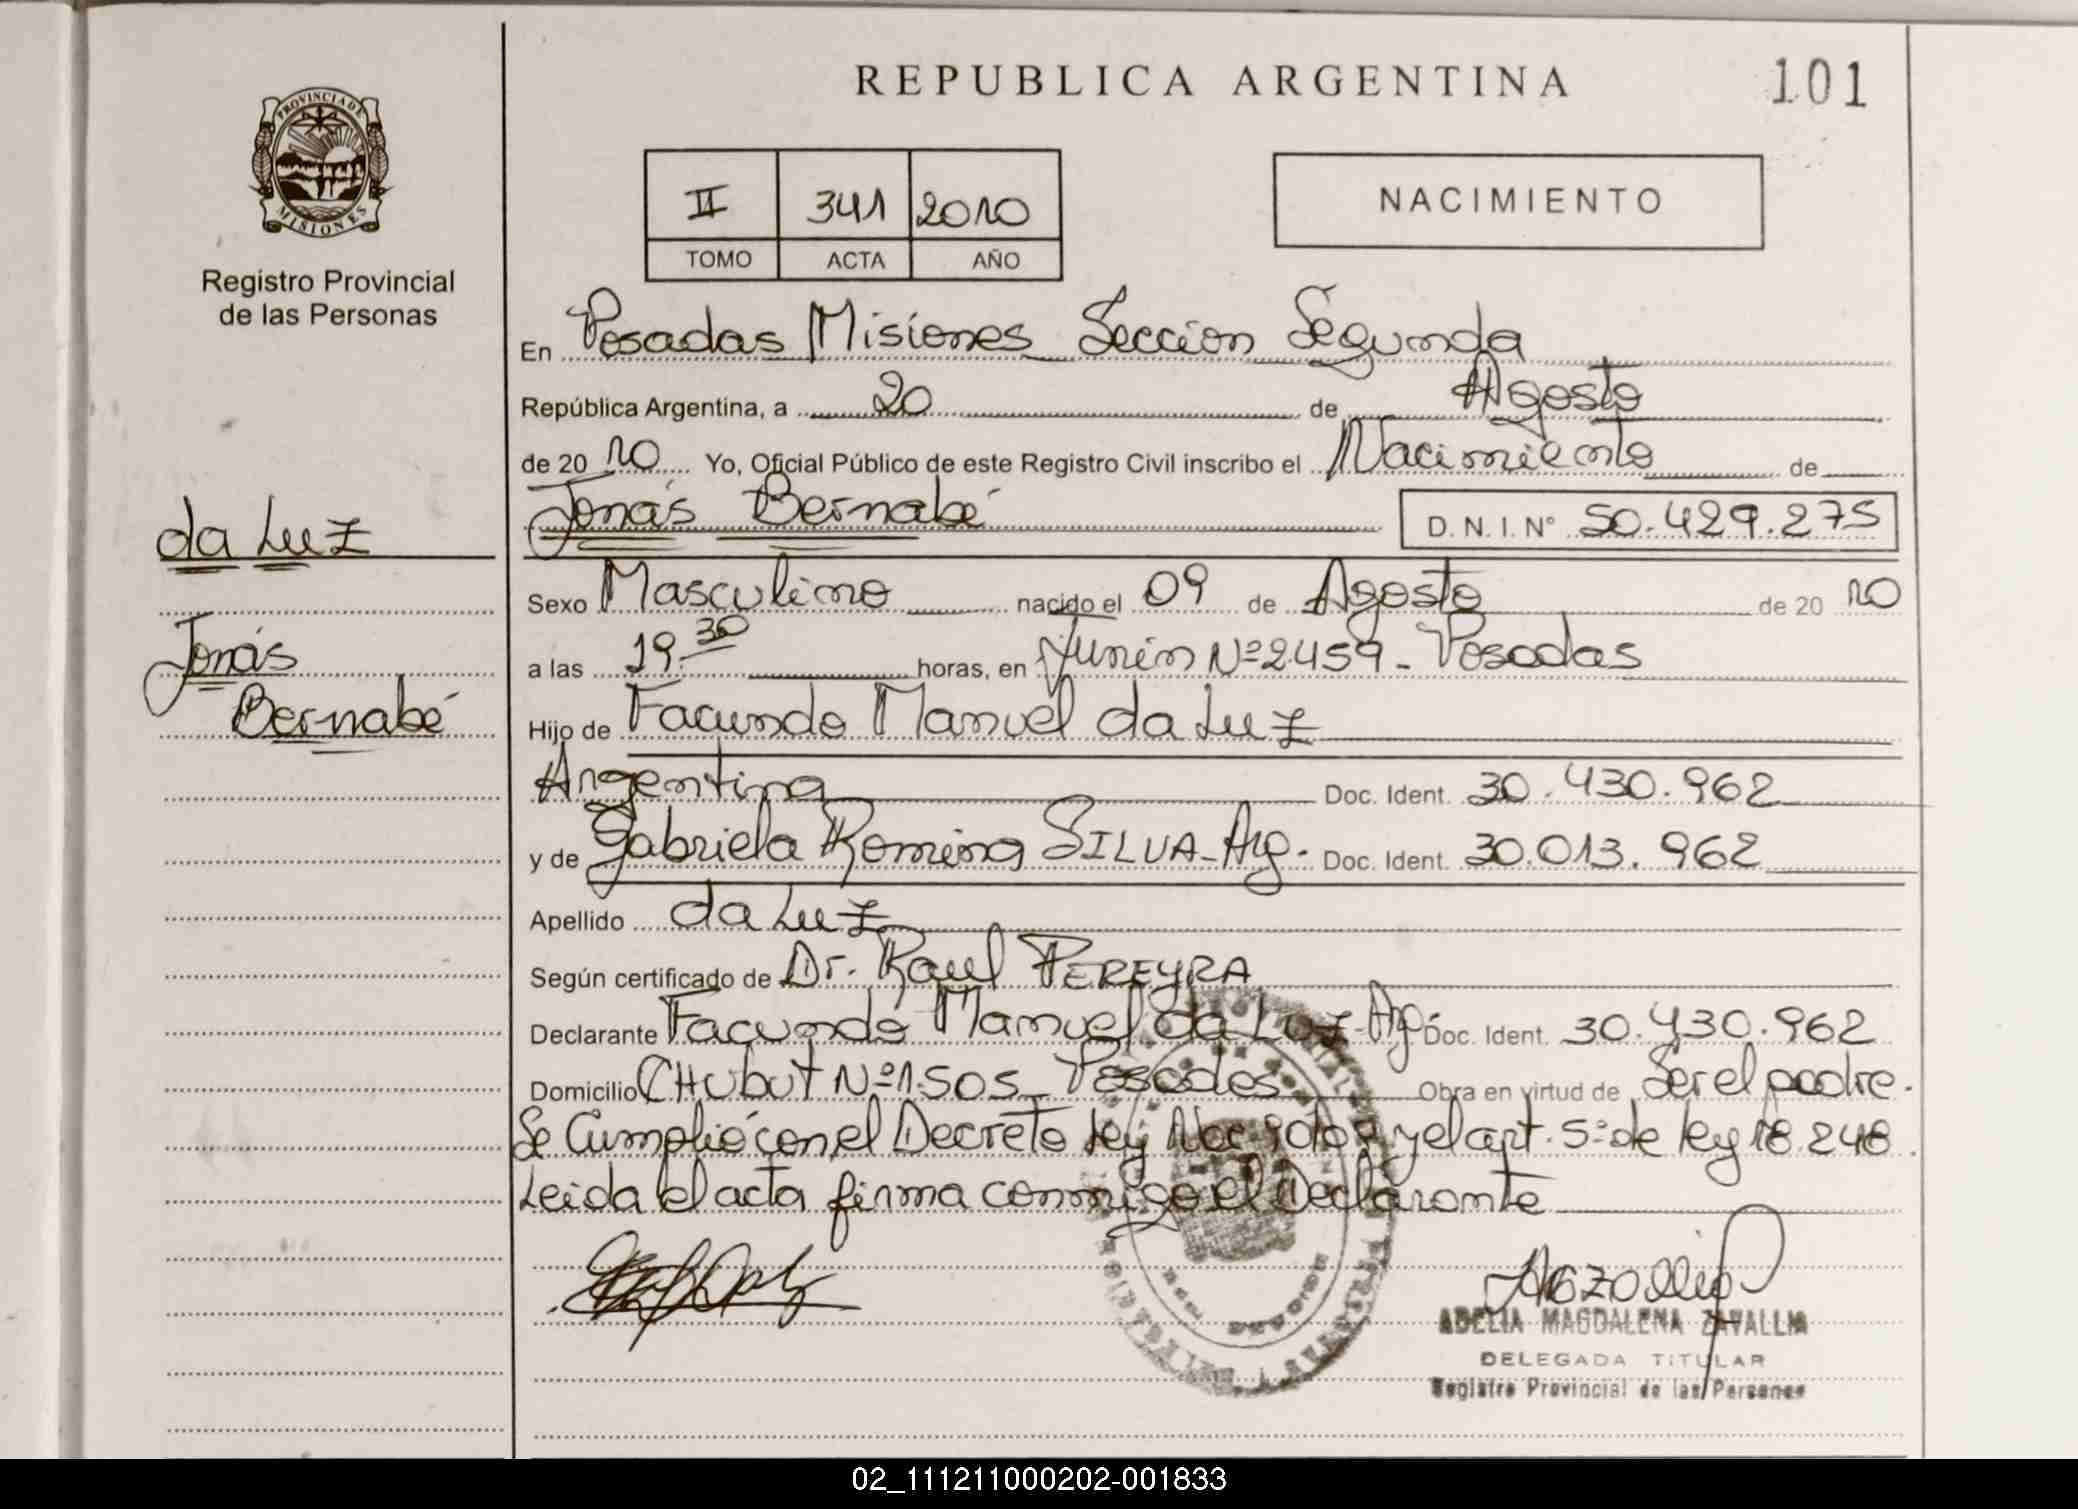 PROVINCIA DE
MISIONES
Registro Provincial
de las Personas
REPUBLICA ARGENTINA
101
II 341 2010
TOMO ACTA AÑO
NACIMIENTO
En Posadas Misiones Sección Segunda
República Argentina, a 20 de Agosto
de 2010 Yo, Oficial Público de este Registro Civil inscribo el Nacimiento de
Jonás Bernabé D. N. I. N° 50.429.275
da Luz
Jonás
Bernabé
Sexo Masculino nacido el 09 de Agosto de 2010
a las 19.30 horas, en Junín Nº 2459 - Posadas
Hijo de Facundo Manuel da Luz
Argentina Doc. Ident. 30.430.962
y de Gabriela Romina SILVA - Arg. Doc. Ident. 30.013.962
Apellido da Luz
Según certificado de Dr. Raul PEREYRA
Declarante Facundo Manuel da Luz - Arg. Doc. Ident. 30.430.962
Domicilio CHubut Nº 1.505 - Posadas Obra en virtud de Ser el padre.
Se Cumplió con el Decreto Ley Nac y el art. 5º de ley 18.248.
Leida el acta firma conmigo el Declarante
ADELIA MAGDALENA ZAVALLIA
DELEGADA TITULAR
Registro Provincial de las Personas
02_111211000202-001833